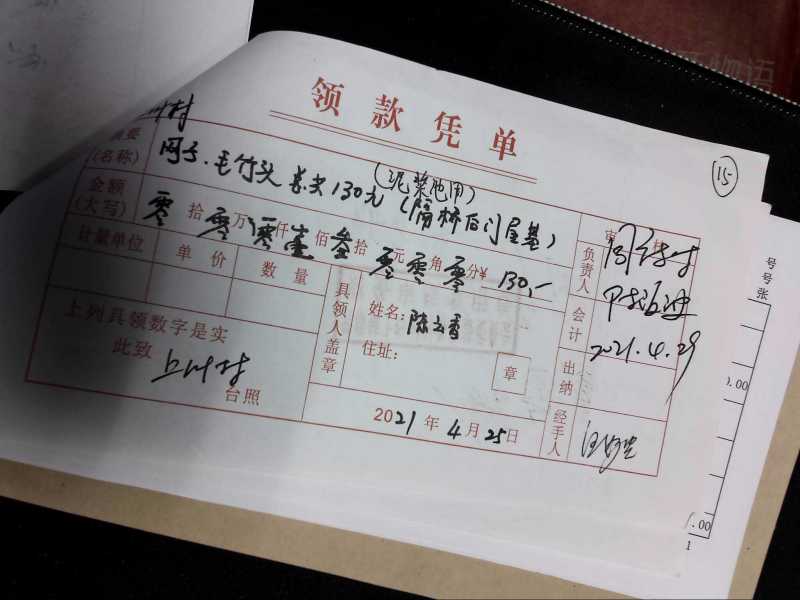 物语
领款凭单
15
村
摘要
(名称)
网子、毛竹头 130元
(泥浆池用)
(隔桥后门屋基)
金额
(大写)
零拾零万零仟壹佰叁拾零元零角零分¥ 130,-
计量单位
单价
数量
上列具领数字是实
此致
上叶村
台照
具领人盖章
姓名:
住址:
章
2021年4月25日
审核
负责人
会计
2021.4.29
出纳
经手人
号
号
张
.00
.00
1